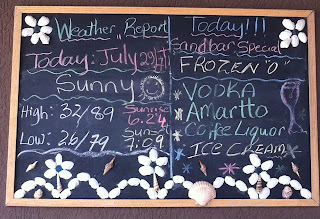 Weather Report
Today: July 29th
Sunny
High: 32/89
Sunrise
6:24
Low: 26/79
Sunset
7:09
Today!!!
Sandbar Special
FROZEN "O"
VODKA
Amartto
Coffee Liquor
ICE CREAM